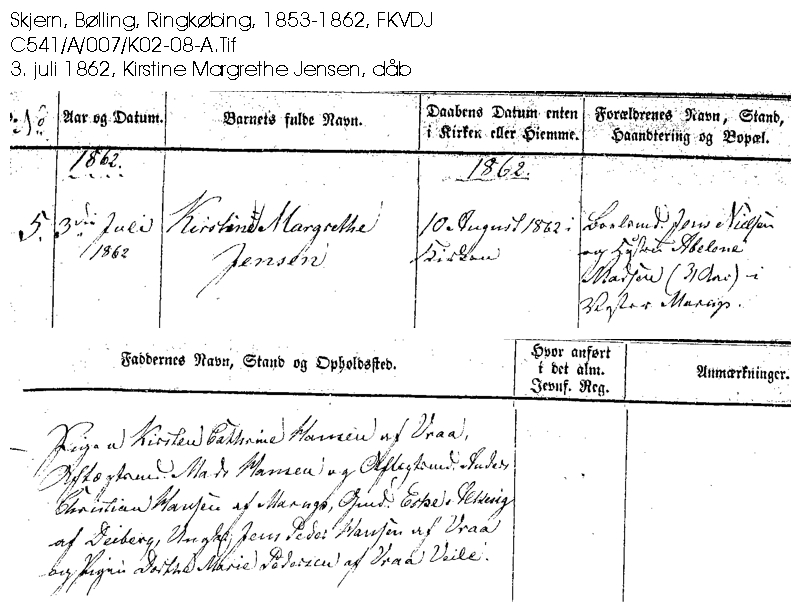 Skjern, Bølling, Ringkøbing, 1853-1862, FKVDJ
C541/A/007/K02-08-A.Tif
3. juli 1862, Kirstine Margrethe Jensen, dåb
No
Aar og Datum.
Barnets fulde Navn.
Daabens Datum enten
i Kirken eller Hiemme.
Forældrenes Navn, Stand,
Haandtering og Bopæl.
1862.
1862.
5.
3die Juli
1862
Kirstine Margrethe
Jensen
10 August 1862 i
Kirken
Boelsmd. Jens Nielsen
og Hustru Abelone
Madsen (31 Aar) i
Vester Marup.
Faddernes Navn, Stand og Opholdsted.
Hvor anført
i det alm.
Jevnf. Reg.
Anmærkninger.
Pigen Kirsten Cathrine Hansen af Vraa,
Aftægtsmd. Mads Hansen og Aftægtsmd. Anders
Christian Hansen af Marup, Gmd. Eske
af Deiberg, Ungkl. Jens Peder Hansen af Vraa
og Pigen Dorthe Marie Pedersen af Vraa